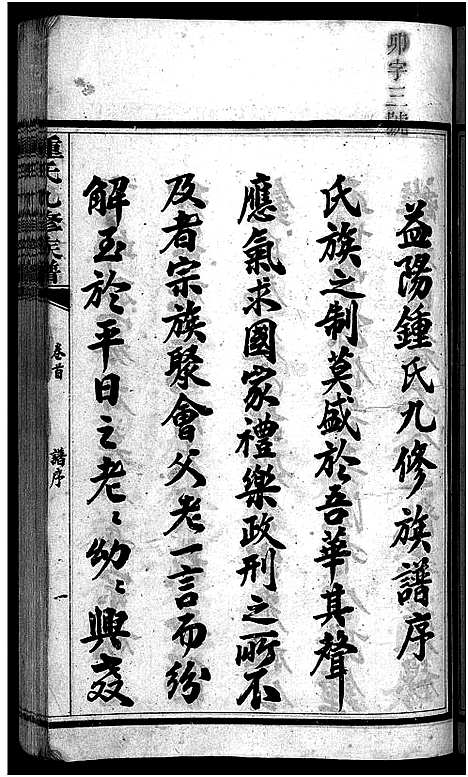 卯字三號
益陽鍾氏九修族譜序
氏族之制莫盛於吾華其聲
應氣求國家禮樂政刑之所不
及者宗族聚會父老一言而紛
解至於平日之老〻幼〻興孝
鍾氏九修族譜
卷首
譜序
一